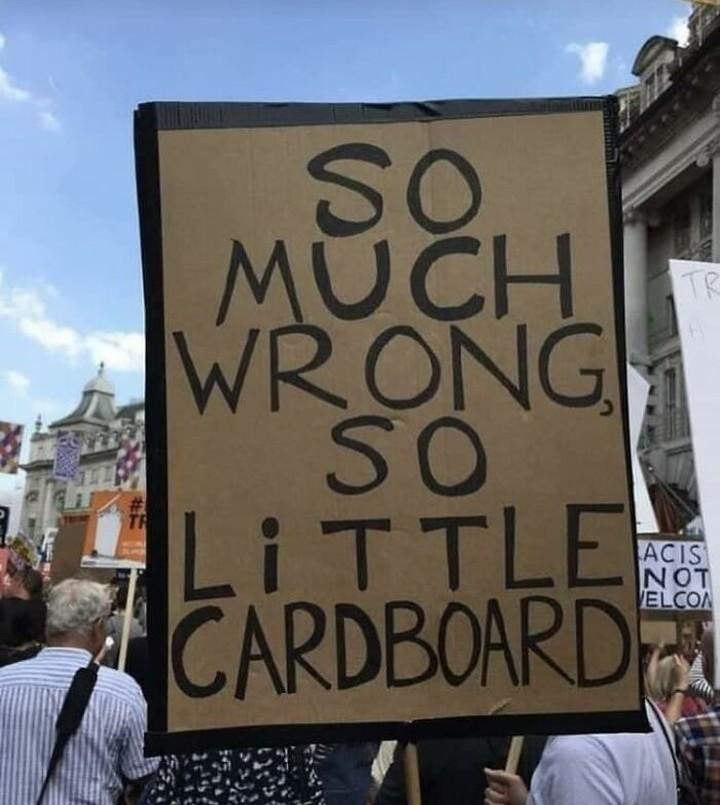 SO
MUCH
WRONG,
SO
LiTTLE
CARDBOARD
TR
#
TR
NOT